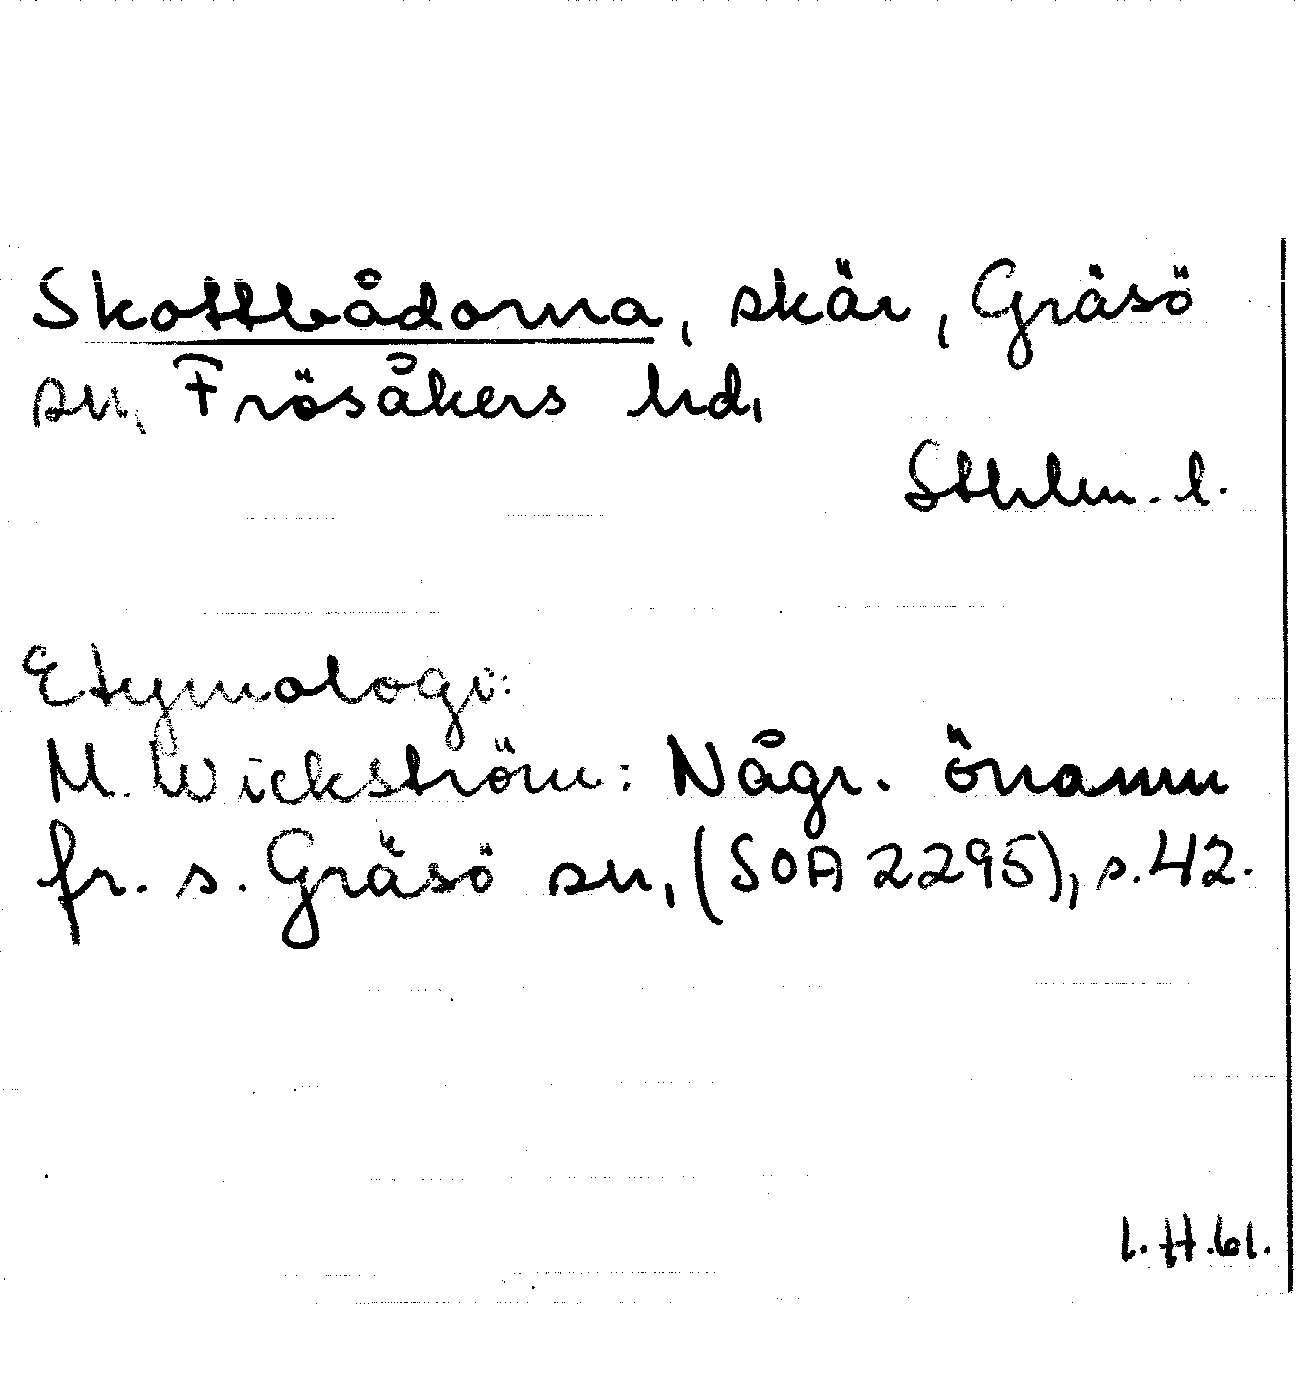 Skottbådorna, skär, Gräsö
sn, Frösåkers hd,
Sthlm. l.
Etymologi:
M. Wickström: Någr. önamn
fr. s. Gräsö sn, (SOA 2295), s. 42.
I. H. 61.